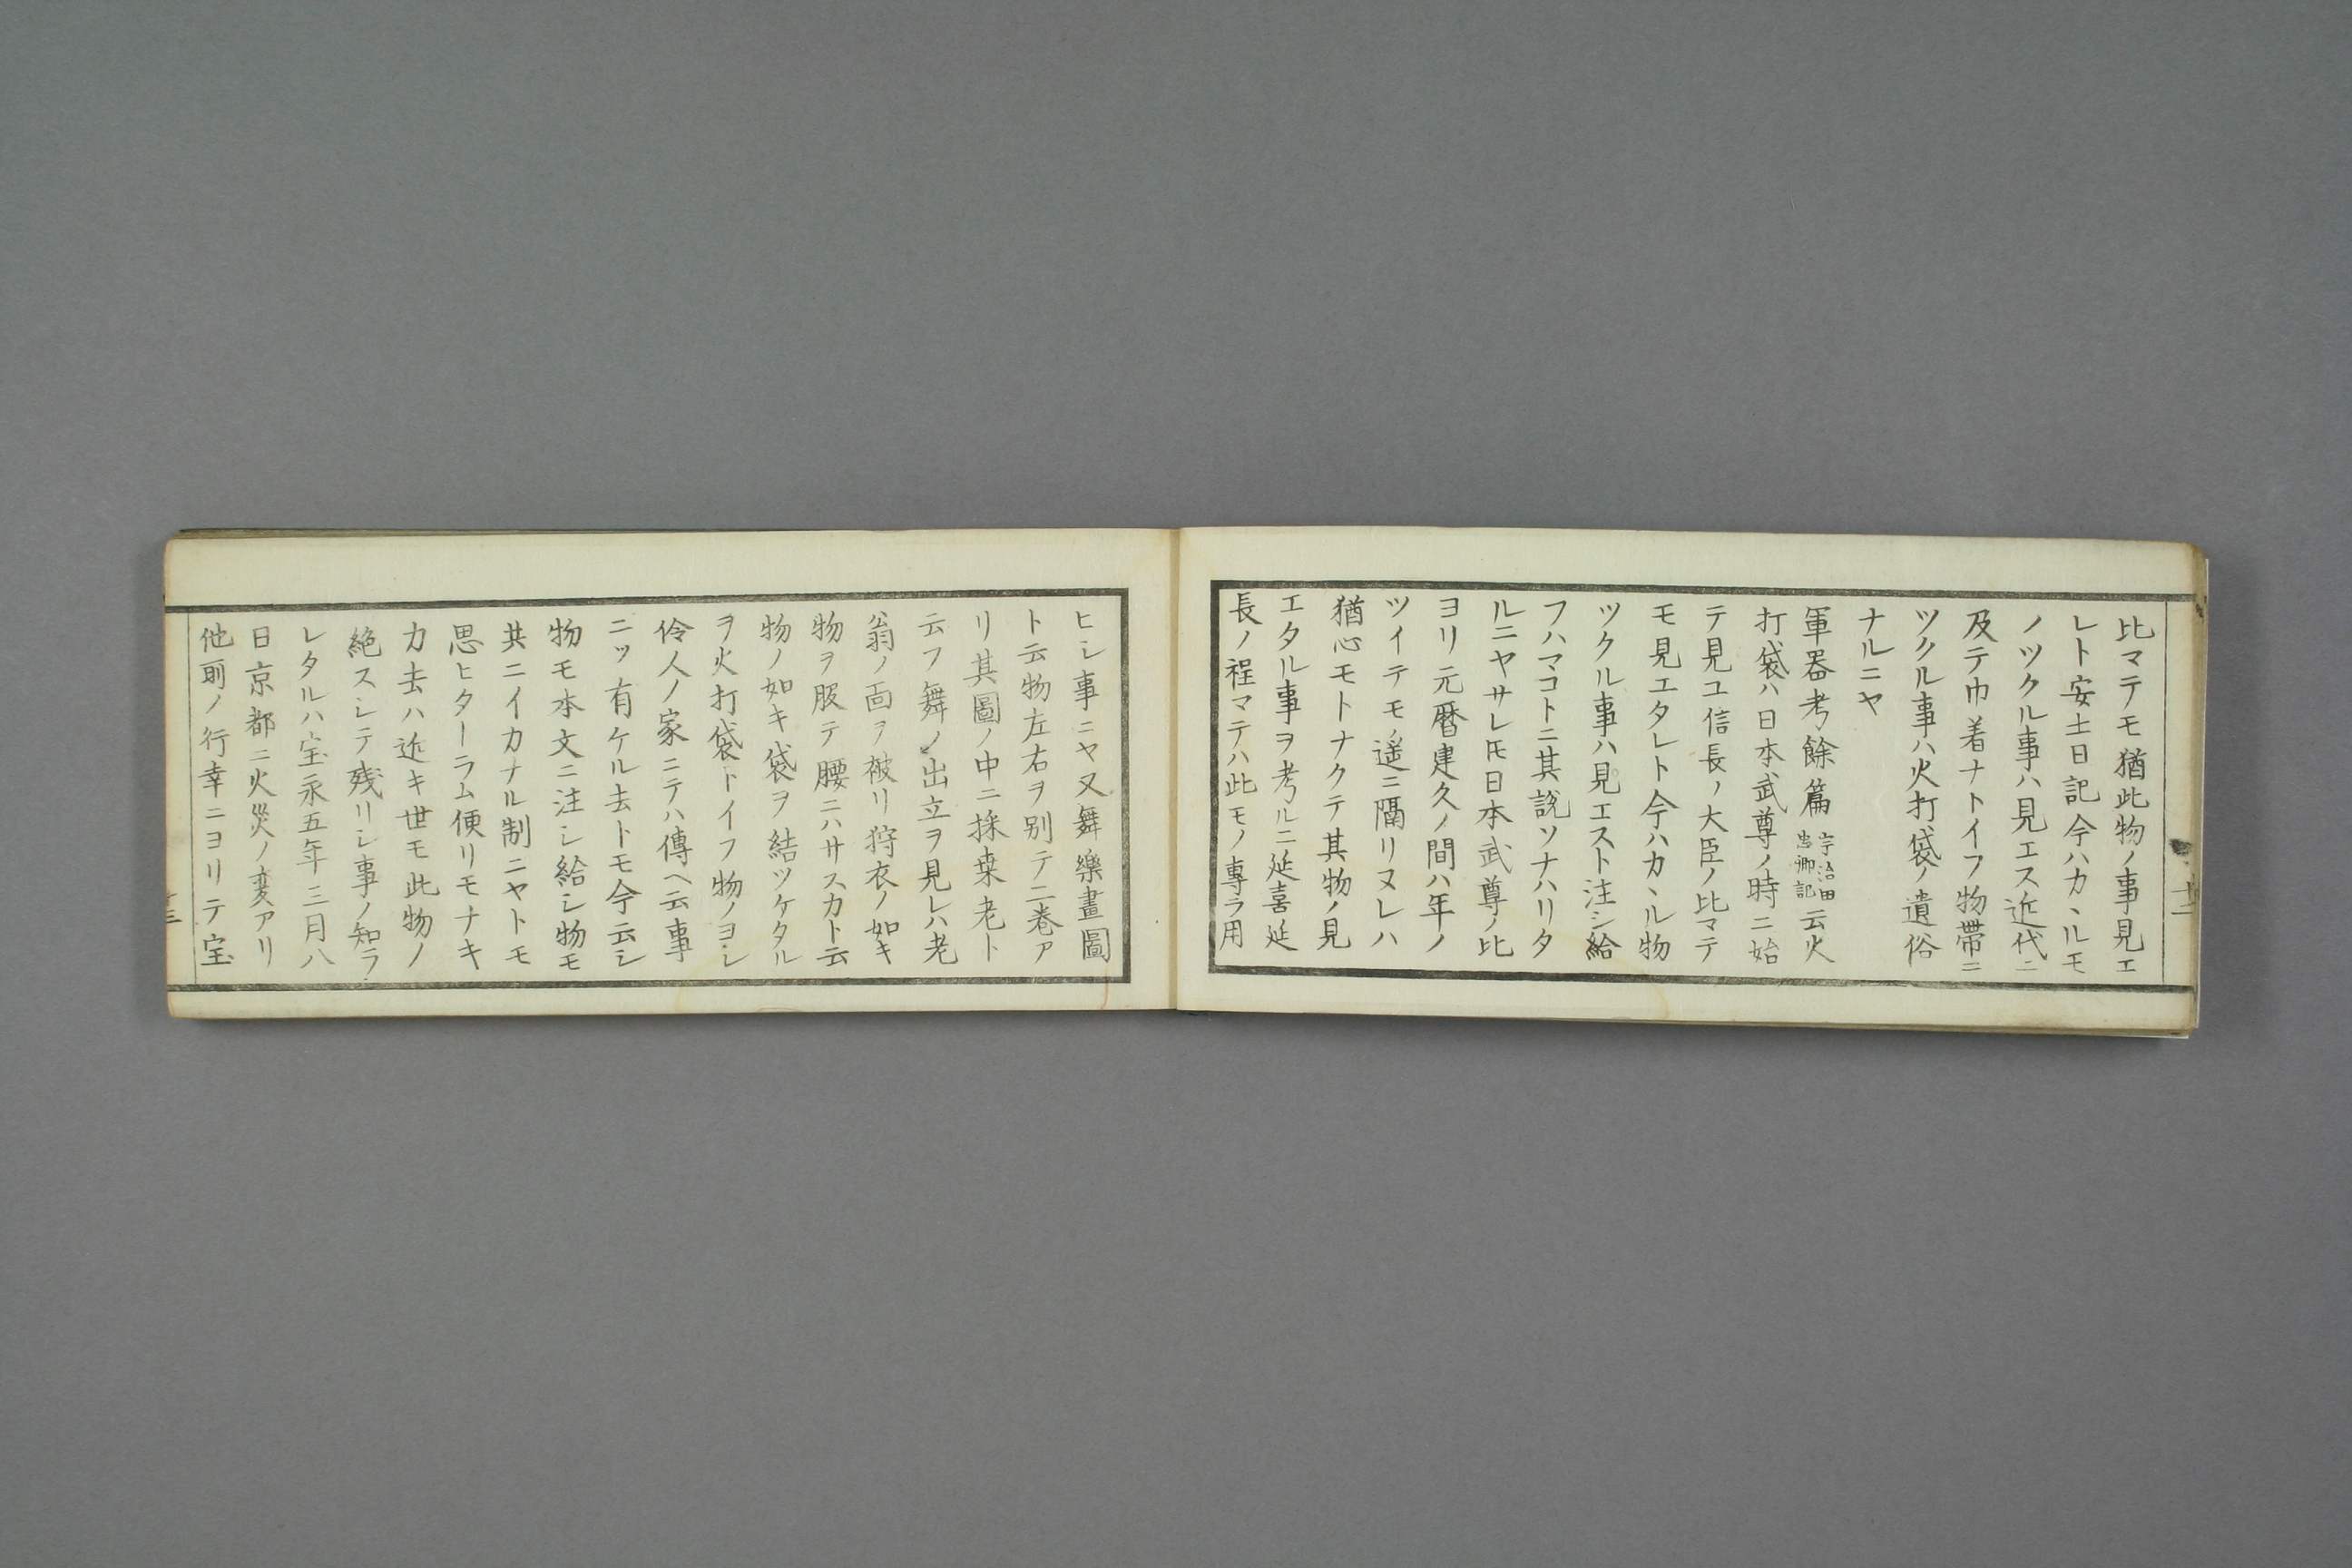 比マテモ猶此物ノ事見エ
レト安土日記今ハカヽルモ
ノツクル事ハ見エス近代ニ
及テ巾着ナトイフ物帶ニ
ツクル事ハ火打袋ノ遺俗
ナルニヤ
軍器考餘篇宇治田忠郷記云火
打袋ハ日本武尊ノ時ニ始
テ見ユ信長ノ大臣ノ比マテ
モ見エタレト今ハカヽル物
ツクル事ハ見エスト注シ給
フハマコトニ其説ソナハリタ
ルニヤサレ𪜈日本武尊ノ比
ヨリ元暦建久ノ間ハ年ノ
ツイテモ遥ニ隔リヌレハ
猶心モトナクテ其物ノ見
エタル事ヲ考ルニ延喜延
長ノ程マテハ此モノ專ラ用
ヒシ事ニヤ又舞樂畫圖
ト云物左右ヲ別テ二巻ア
リ其圖ノ中ニ採桒老ト
云フ舞ノ出立ヲ見レハ老
翁ノ面ヲ被リ狩衣ノ如キ
物ヲ服テ腰ニハサスカト云
物ノ如キ袋ヲ結ツケタル
ヲ火打袋トイフ物ノヨシ
伶人ノ家ニテハ傳ヘ云事
ニッ有ケル去トモ今云シ
物モ本文ニ注シ給シ物モ
共ニイカナル制ニヤトモ
思ヒターラム便リモナキ
カ去ハ近キ世モ此物ノ
絶スシテ残リシ事ノ知ラ
レタルハ宝永五年三月八
日京都ニ火災ノ変アリ
他所ノ行幸ニヨリテ宝
十三